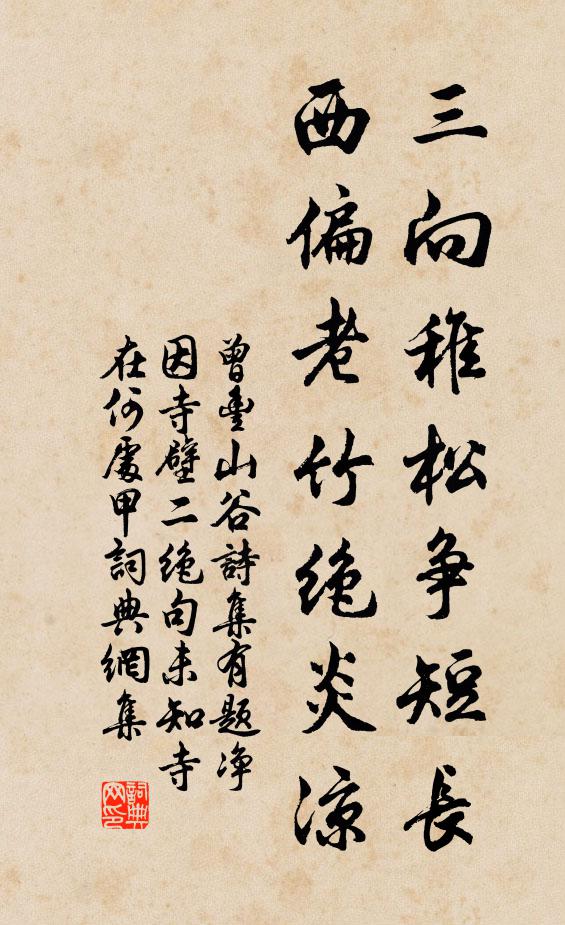 三向稚松争短長
西偏老竹绝炎凉
曾豊山谷詩集有题净
因寺壁二绝句未知寺
在何處甲詞典網集
詞典网印